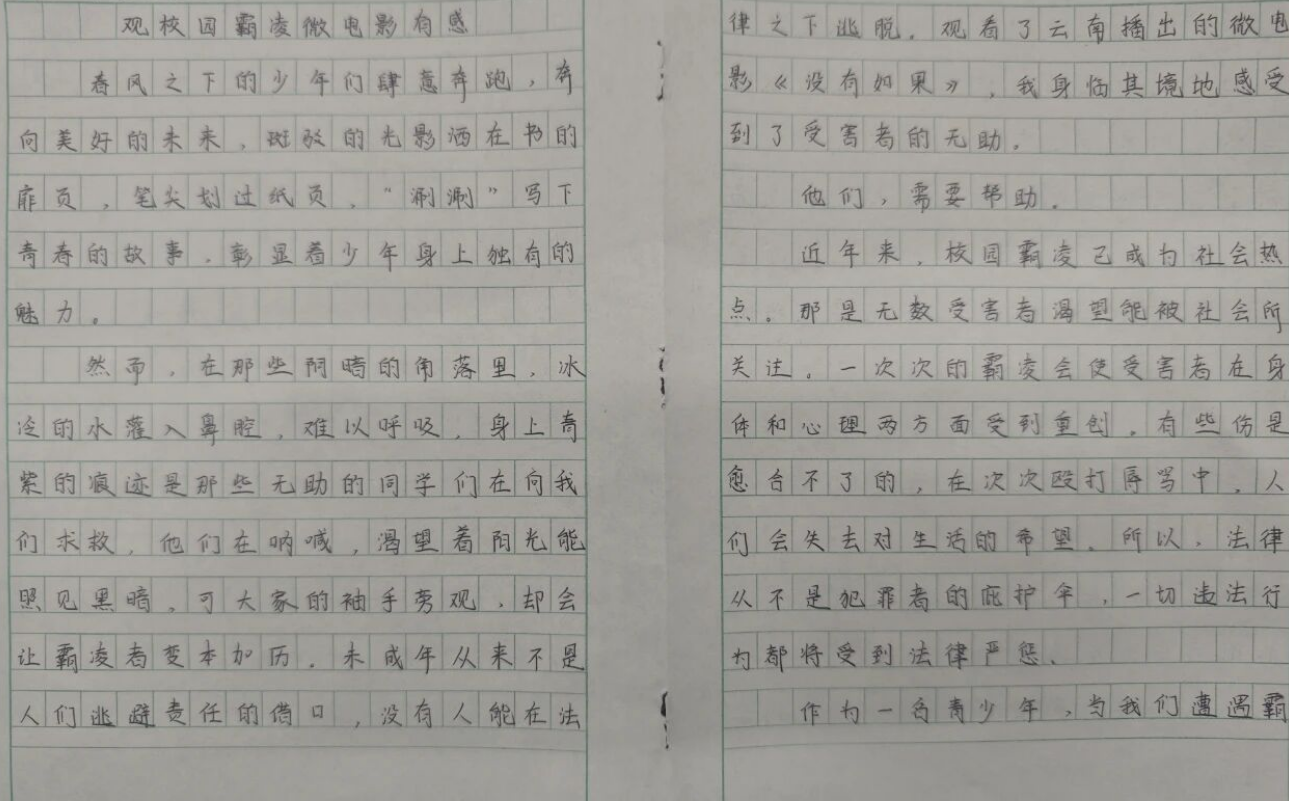 观校园霸凌微电影有感
春风之下的少年们肆意奔跑，奔
向美好的未来，斑驳的光影洒在书的
扉页，笔尖划过纸页，“涮涮”写下
青春的故事，彰显着少年身上独有的
魅力。
然而，在那些阴暗的角落里，冰
冷的水灌入鼻腔，难以呼吸，身上青
紫的痕迹是那些无助的同学们在向我
们求救，他们在呐喊，渴望着阳光能
照见黑暗，可大家的袖手旁观，却会
让霸凌者变本加历。未成年从来不是
人们逃避责任的借口，没有人能在法
律之下逃脱，观看了云南播出的微电
影《没有如果》，我身临其境地感受
到了受害者的无助。
他们，需要帮助。
近年来，校园霸凌已成为社会热
点，那是无数受害者渴望能被社会所
关注。一次次的霸凌会使受害者在身
体和心理两方面受到重创，有些伤是
愈合不了的，在次次殴打辱骂中，人
们会失去对生活的希望。所以，法律
从不是犯罪者的庇护伞，一切违法行
为都将受到法律严惩。
作为一名青少年，当我们遭遇霸